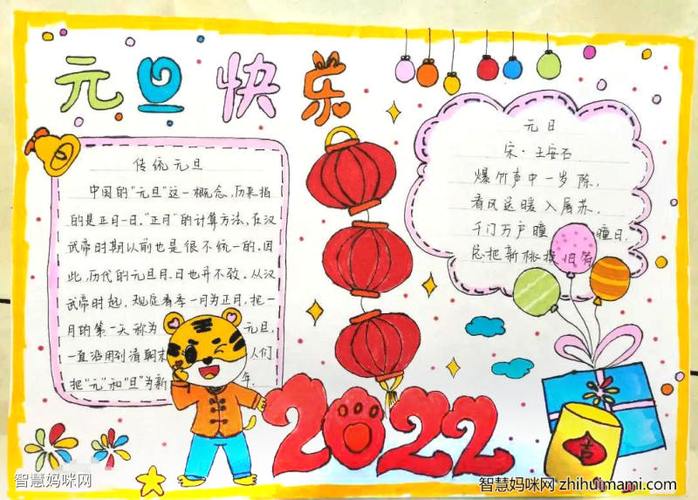 元旦快乐
传统元旦
中国的"元旦"这一概念,历来指
的是正月一日。"正月"的计算方法,在汉
武帝时期以前也是很不统一的。因
此,历代的元旦月、日也并不致。从汉
武帝时起,规定春季一月为正月,把一
月的第一天称为 元旦,
一直沿用到清朝末 人们
把"元"和"旦"为新 年.
元日
宋·王安石
爆竹声中一岁除,
春风送暖入屠苏.
千门万户瞳 瞳日,
总把新桃换旧符
2022
智慧妈咪网
智慧妈咪网 zhihuimami.com